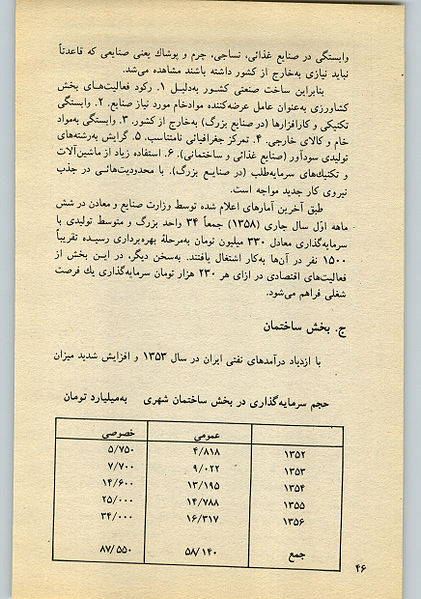 وابستگی در صنایع غذائی، نساجی، چرم و پوشاك یعنی صنایعی که قاعدتاً
نباید نیازی به‌خارج از کشور داشته باشند مشاهده می‌شد.
بنابراین ساخت صنعتی کشور به‌دلیل ۱. رکود فعالیت‌های بخش
کشاورزی به‌عنوان عامل عرضه‌کننده موادخام مورد نیاز صنایع. ۲. وابستگی
تکنیکی و کارافزارها (در صنایع بزرگ) به‌خارج از کشور. ۳. وابستگی به‌مواد
خام و کالای خارجی. ۴. تمرکز جغرافیائی نامتناسب. ۵. گرایش به‌رشته‌های
تولیدی سودآور (صنایع غذائی و ساختمانی). ۶. استفاده زیاد از ماشین‌آلات
و تکنیك‌های سرمایه‌طلب (در صنایع بزرگ). با محدودیت‌هائی در جذب
نیروی کار جدید مواجه است.
طبق آخرین آمارهای اعلام شده توسط وزارت صنایع و معادن در شش
ماهه اوّل سال جاری (۱۳۵۸) جمعاً ۳۴ واحد بزرگ و متوسط تولیدی با
سرمایه‌گذاری معادل ۳۳۰ میلیون تومان به‌مرحلهٔ بهره‌برداری رسیده تقریباً
۱۵۰۰ نفر در آن‌ها به‌کار اشتغال یافتند. به‌سخن دیگر، در این بخش از
فعالیت‌های اقتصادی در ازای هر ۲۳۰ هزار تومان سرمایه‌گذاری یك فرصت
شغلی فراهم می‌شود.
ج. بخش ساختمان
با ازدیاد درآمدهای نفتی ایران در سال ۱۳۵۳ و افزایش شدید میزان
حجم سرمایه‌گذاری در بخش ساختمان شهری به‌میلیارد تومان
عمومی خصوصی
۱۳۵۲ ۴/۸۱۸ ۵/۷۵۰
۱۳۵۳ ۹/۰۲۲ ۷/۷۰۰
۱۳۵۴ ۱۳/۱۹۵ ۱۴/۶۰۰
۱۳۵۵ ۱۴/۷۸۸ ۲۵/۰۰۰
۱۳۵۶ ۱۶/۳۱۷ ۳۴/۰۰۰
جمع ۵۸/۱۴۰ ۸۷/۵۵۰
۴۶